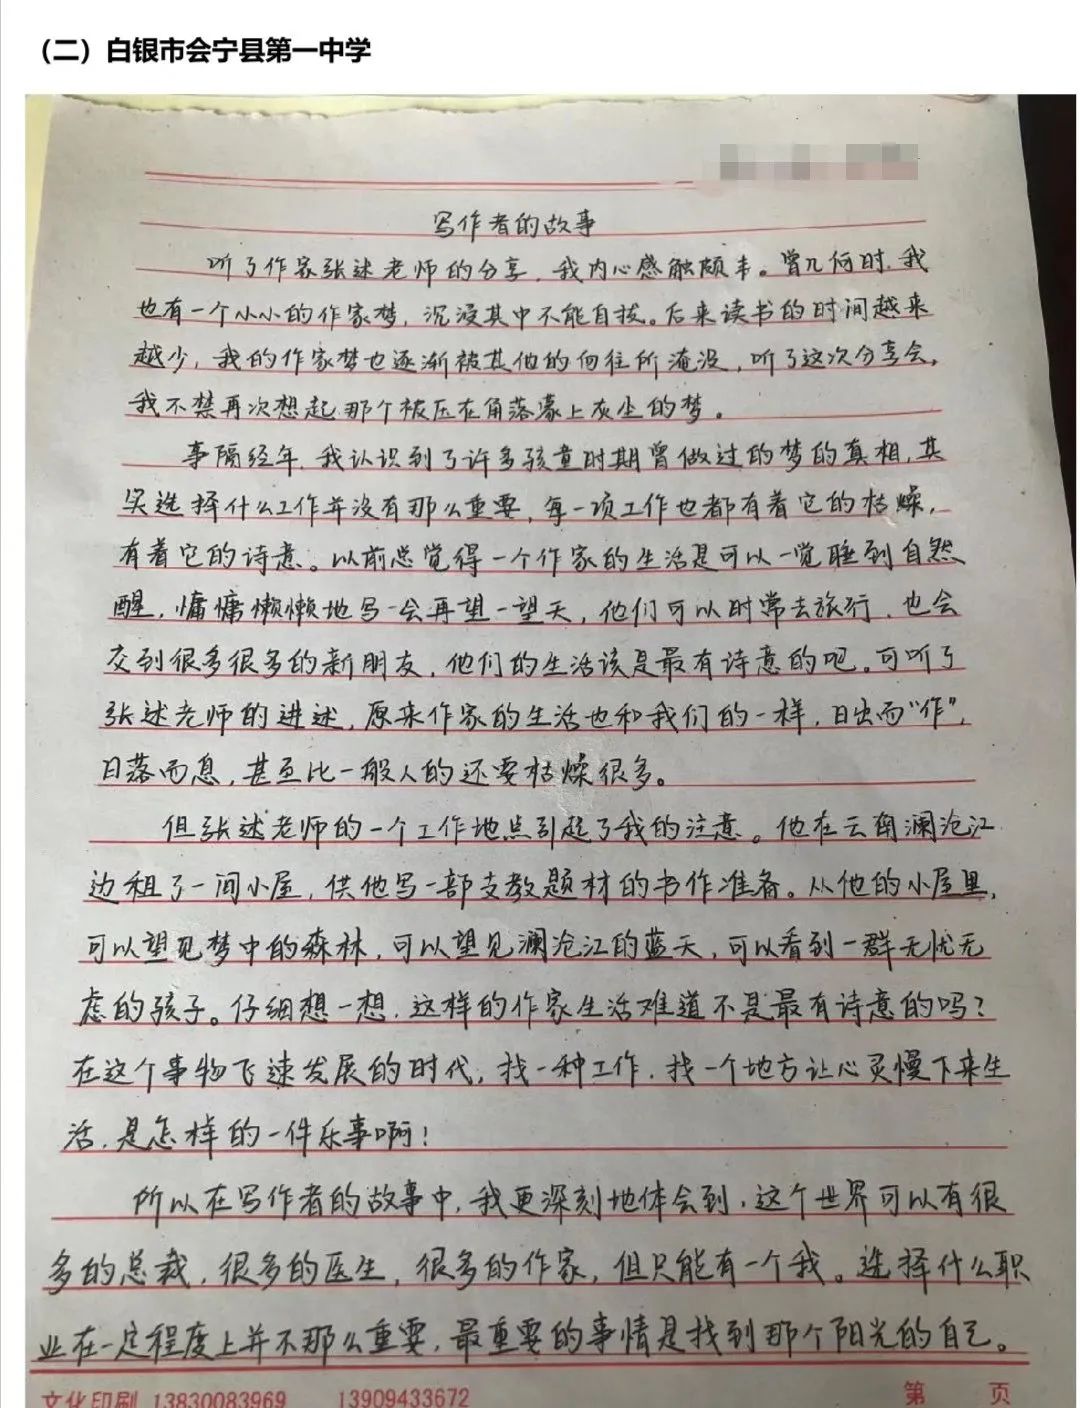 （二）白银市会宁县第一中学
写作者的故事
听了作家张述老师的分享，我内心感触颇丰。曾几何时，我
也有一个小小的作家梦，沉浸其中不能自拔。后来读书的时间越来
越少，我的作家梦也逐渐被其他的向往所淹没，听了这次分享会，
我不禁再次想起那个被压在角落濛上灰尘的梦。
事隔经年，我认识到了许多孩童时期曾做过的梦的真相，其
实选择什么工作并没有那么重要，每一项工作也都有着它的枯燥，
有着它的诗意。以前总觉得一个作家的生活是可以一觉睡到自然
醒，慵慵懒懒地写一会再望一望天，他们可以时常去旅行，也会
交到很多很多的新朋友，他们的生活该是最有诗意的吧。可听了
张述老师的讲述，原来作家的生活也和我们的一样，日出而“作”，
日落而息，甚至比一般人的还要枯燥很多。
但张述老师的一个工作地点引起了我的注意。他在云南澜沧江
边租了一间小屋，供他写一部支教题材的书作准备。从他的小屋里，
可以望见梦中的森林，可以望见澜沧江的蓝天，可以看到一群无忧无
虑的孩子。仔细想一想，这样的作家生活难道不是最有诗意的吗？
在这个事物飞速发展的时代，找一种工作，找一个地方让心灵慢下来生
活，是怎样的一件乐事啊！
所以在写作者的故事中，我更深刻地体会到，这个世界可以有很
多的总裁，很多的医生，很多的作家，但只能有一个我。选择什么职
业在一定程度上并不那么重要，最重要的事情是找到那个阳光的自己。
文化印刷 13830083969 13909433672 第 页